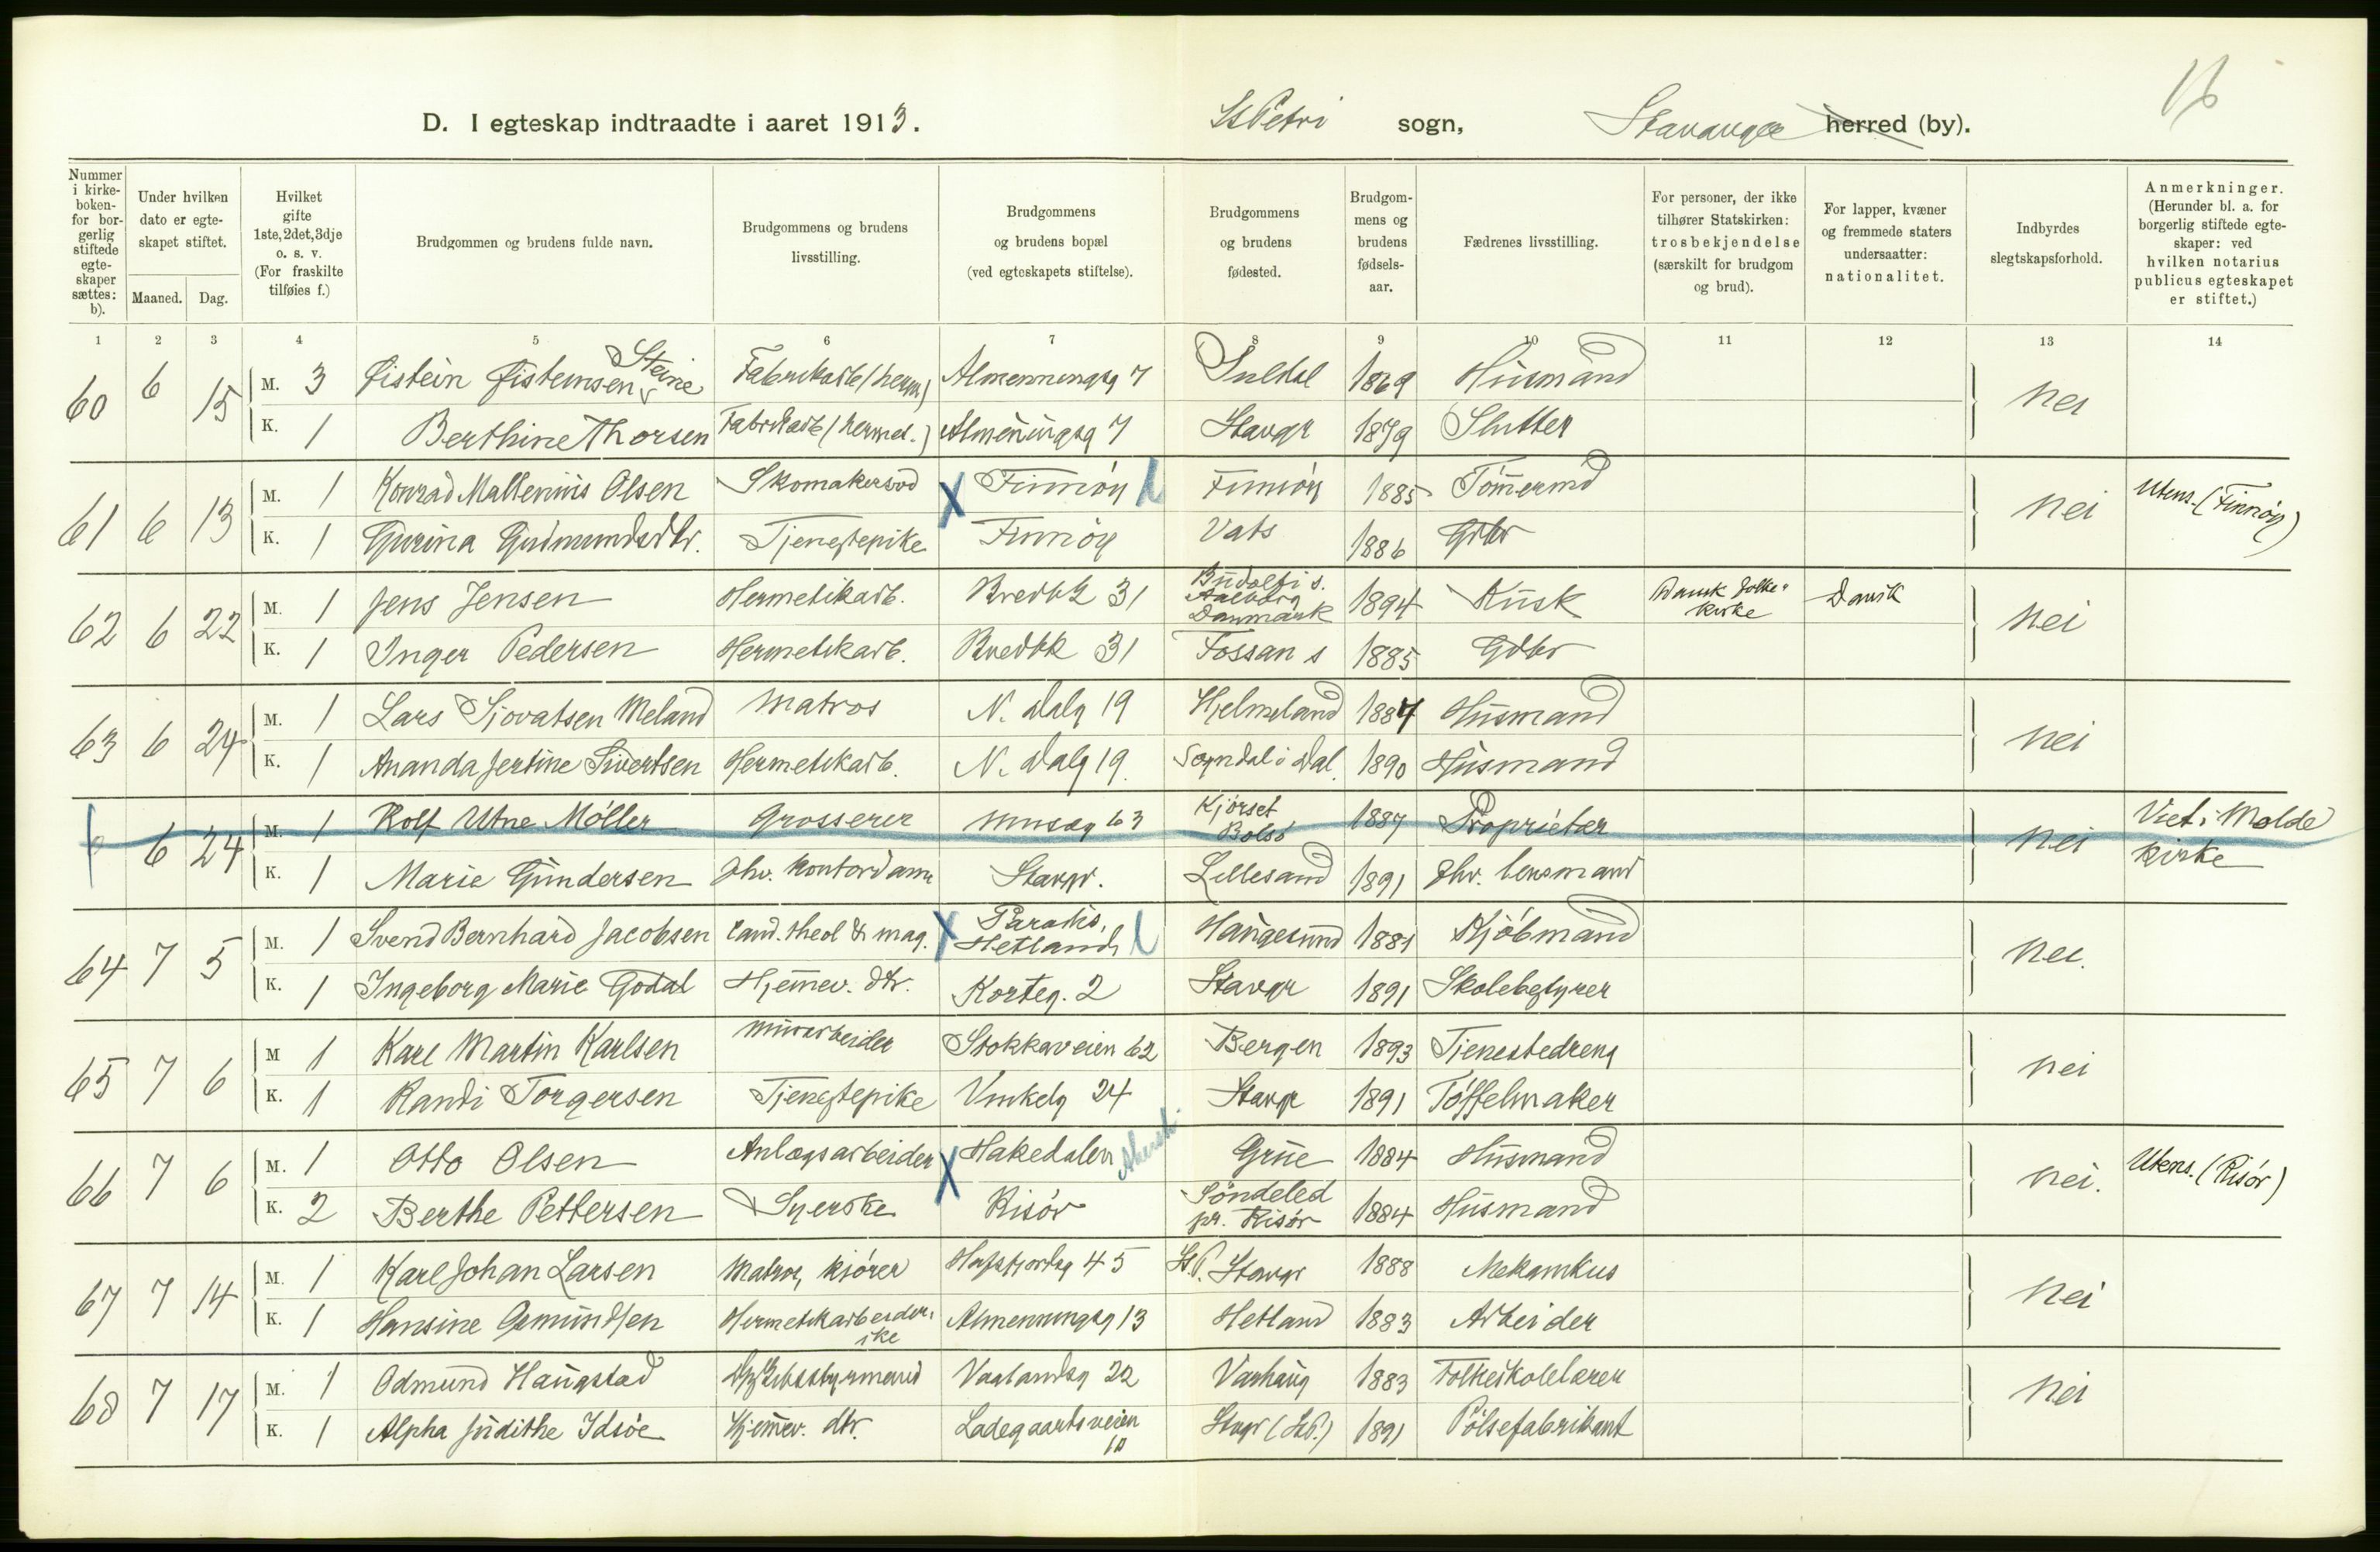 16
D. I egteskap indtraadte i aaret 1913. St Petri sogn, Stavanger herred (by).
Nummer i kirkeboken- for borgerlig stiftede egteskaper sættes: b).
Under hvilken dato er egteskapet stiftet.
Maaned. Dag.
Hvilket gifte 1ste, 2det, 3dje o. s. v. (For fraskilte tilføies f.)
Brudgommen og brudens fulde navn.
Brudgommens og brudens livsstilling.
Brudgommens og brudens bopæl (ved egteskapets stiftelse).
Brudgommens og brudens fødested.
Brudgommens og brudens fødselsaar.
Fædrenes livsstilling.
For personer, der ikke tilhører Statskirken: trosbekjendelse (særskilt for brudgom og brud).
For lapper, kvæner og fremmede staters undersaatter: nationalitet.
Indbyrdes slegtskapsforhold.
Anmerkninger. (Herunder bl. a. for borgerlig stiftede egteskaper: ved hvilken notarius publicus egteskapet er stiftet.)
1 2 3 4 5 6 7 8 9 10 11 12 13 14
60 6 15 M. 3 Øistein Øisteinsen Steine Fabrikarb (herm) Almenningsg 7 Suldal 1869 Husmand nei
K. 1 Berthine Thorsen Fabrikarb (hermet.) Almeningsg 7 Stavgr 1879 Slutter
61 6 13 M. 1 Konrad Mallenius Olsen Skomakersvd X Finnöy Finnöy 1885 Tömermd nei Utens. (Finnöy)
K. 1 Gurina Gudmundsdtr. Tjenestepike Finnöy Vats 1886 Gdbr
62 6 22 M. 1 Jens Jensen Hermetikarb. Bredbk 31 Budolfi s. Aalborg Danmark 1894 Kusk Dansk Folkekirke Dansk nei
K. 1 Inger Pedersen Hermetikarb. Bredbk 31 Fossan s 1885 Gdbr
63 6 24 M. 1 Lars Sjovatsen Meland Matros N. Dalg 19 Hjelmeland 1887 Husmand nei
K. 1 Ananda Jertine Sivertsen Hermetikarb. N. Dalg 19. Sogndal i Dal. 1890 Husmand
6 24 M. 1 Rolf Utne Möller Grosserer Museg 63 Kjörset Bolsö 1887 Proprietær nei Viet i Molde kirke
K. 1 Marie Gundersen fhv. Kontordame Stavgr. Lillesand 1891 fhv. lensmand
64 7 5 M. 1 Svend Bernhard Jacobsen cand. theol & mag. X Paradis, Hetland Haugesund 1881 Kjöbmand nei.
K. 1 Ingeborg Marie Godal Hjemev. dtr. Korteg. 2 Stavgr 1891 Skolebestyrer
65 7 6 M 1 Karl Martin Karlsen Murarbeider Stokkaveien 62 Bergen 1893 Tjenestedreng nei
K. 1 Randi Torgersen Tjenestepike Vinkelg 24 Stavgr 1891 Töffelmaker
66 7 6 M. 1 Otto Olsen Anlægsarbeider X Hakedalen Akersh. Grue 1884 Husmand nei. Utens. (Risör)
K. 2 Berthe Pettersen Syerske Risör Söndeled pr. Risör 1884 Husmand
67 7 14 M. 1 Karl Johan Larsen Matros, kjörer Hafsfjordsg 45 St.P. Stavgr 1888 Mekanikus nei
K. 1 Hansine Gemundsen Hermetikarbeiderske Almenningsg 13 Hetland 1883 Arbeider
68 7 17 M. 1 Odmund Haugstad Dpskibsstyrmand Vaalandsg 22 Varhaug 1883 Folkeskolelærer nei
K. 1 Alpha Judithe Idsöe Hjemev. dtr. Ladegaardsveien 10 Stvgr (St.P.) 1891 Pölsefabrikant